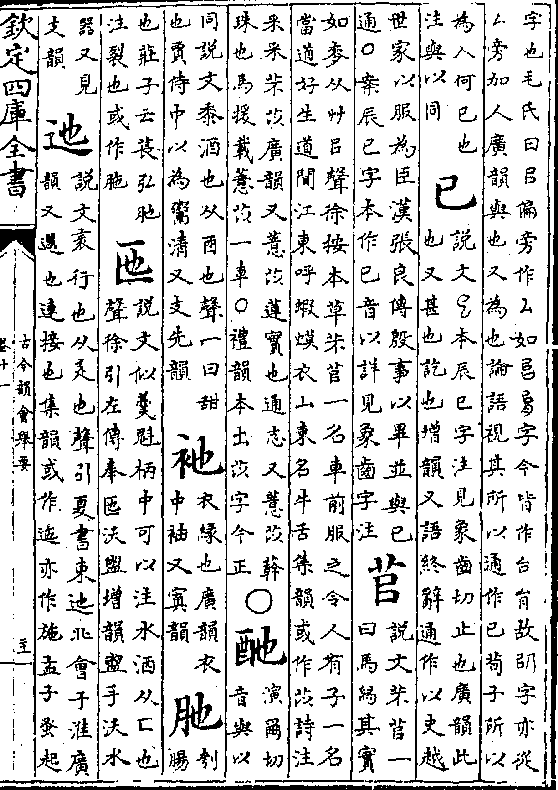 字也毛氏曰㠯偏旁作厶如㠯字今皆作台肯故㕥字亦從
厶旁加人廣韻與也又為也論語視其所以通作已荀子所以
為人何已也
注與以同
已
說文㠯本辰巳字注見象齒切止也廣韻此
也又甚也訖也增韻又語終辭通作以史越
世家以服為臣漢張良傳殷事以畢並與已
通○案辰巳字本作巳音以詳見象齒字注
苢
說文芣苢一
曰馬舄其實
如麥从艸㠯聲徐按本草芣苢一名車前服之令人有子一名
當道好生道間江東呼蝦蟆衣山東名牛舌集韻或作苡詩注
采采芣苡廣韻又薏苡蓮實也通志又薏苡
珠也馬援載薏苡一車○禮韻本出苡字今正
○酏
演爾切
音與以
同說文黍酒也从酉也聲一曰甜
也賈侍中以為鬻清又支先韻
袘
衣緣也廣韻衣
中袖又寘韻
胣
刳
腸
也莊子云萇弘胣
注裂也或作肔
匜
說文似羹魁柄中可以注水酒从匚也
聲徐引左傳奉匜沃盥增韻盥手沃水
器又見
支韻
迆
說文衺行也从辵也聲引夏書東迆北會于淮廣
韻又邐也連接也集韻或作迤亦作施孟子蚤起
欽定四庫全書
古今韻會舉要
卷十一